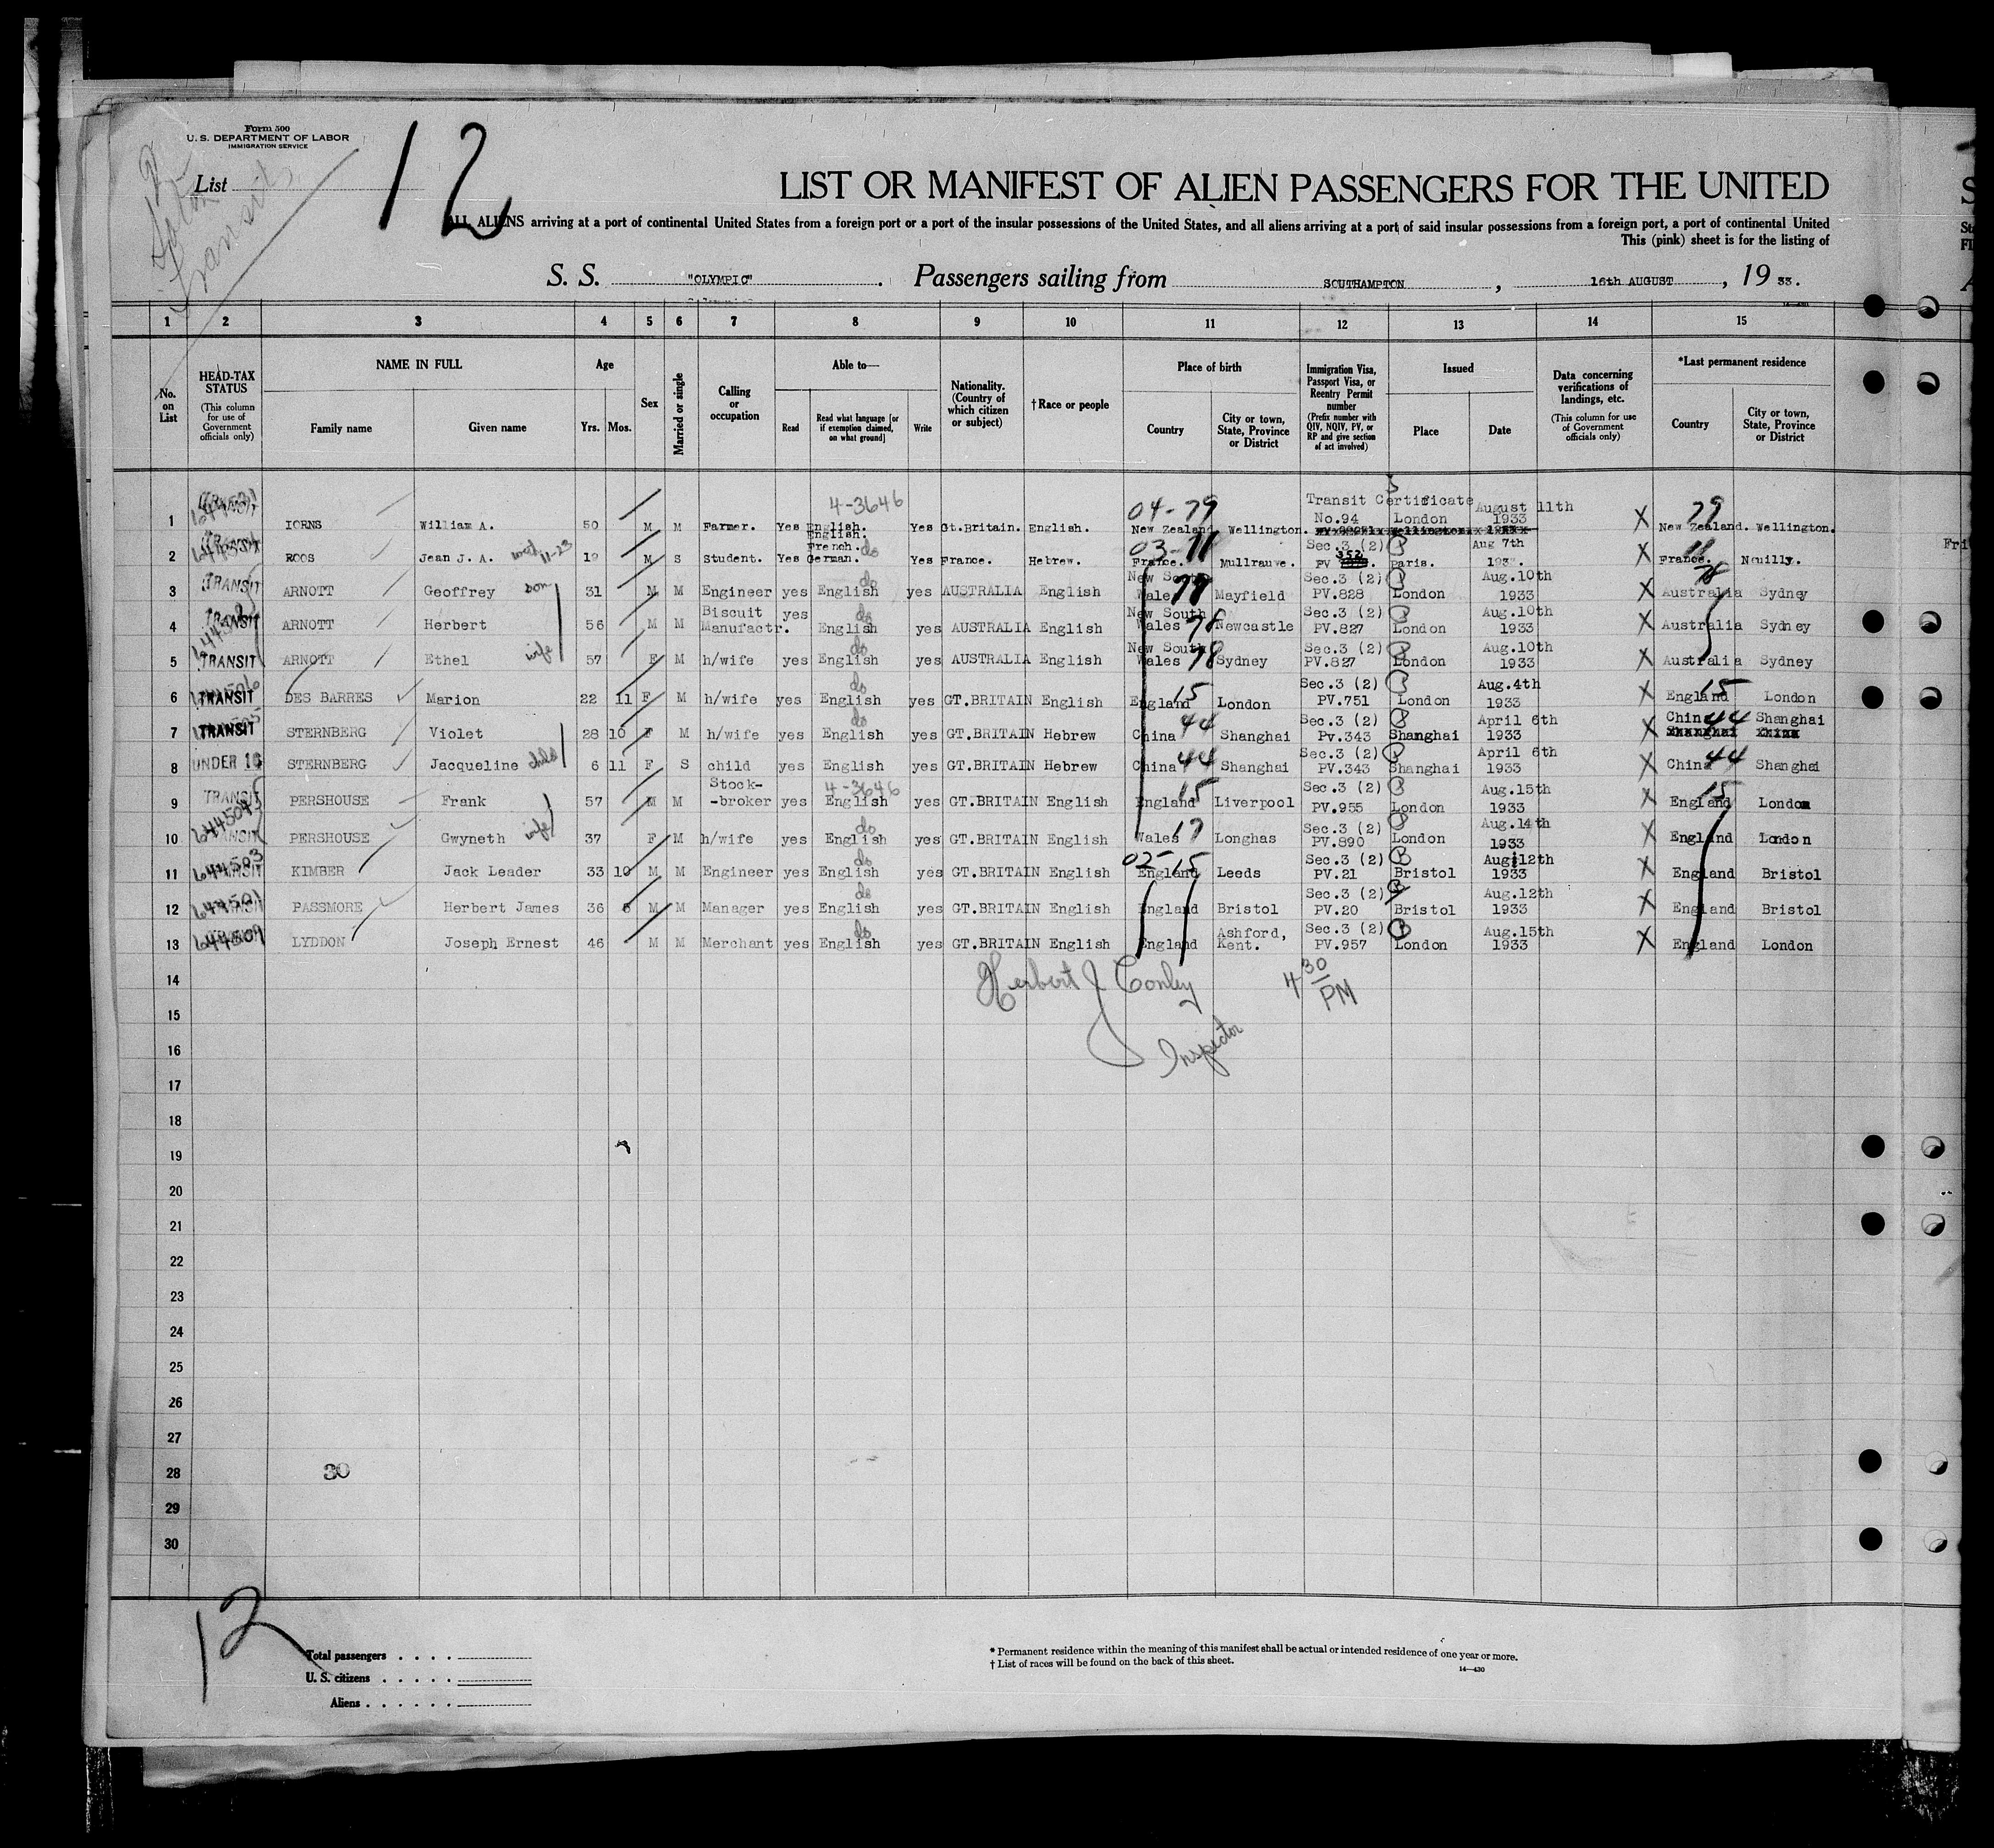 Form 500
U. S. DEPARTMENT OF LABOR
IMMIGRATION SERVICE
List
12
Transits
LIST OR MANIFEST OF ALIEN PASSENGERS FOR THE UNITED
ALL ALIENS arriving at a port of continental United States from a foreign port or a port of the insular possessions of the United States, and all aliens arriving at a port of said insular possessions from a foreign port, a port of continental United
This (pink) sheet is for the listing of
S. S. "OLYMPIC". Passengers sailing from SOUTHAMPTON, 16th AUGUST, 19 33.
1 2 3 4 5 6 7 8 9 10 11 12 13 14 15
No. on List
HEAD-TAX STATUS (This column for use of Government officials only)
NAME IN FULL Family name Given name
Age Yrs. Mos.
Sex
Married or single
Calling or occupation
Able to— Read Read what language [or if exemption claimed, on what ground] Write
Nationality. (Country of which citizen or subject)
†Race or people
Place of birth Country City or town, State, Province or District
Immigration Visa, Passport Visa, or Reentry Permit number (Prefix number with QIV, NQIV, PV, or RP and give section of act involved)
Issued Place Date
Data concerning verifications of landings, etc. (This column for use of Government officials only)
*Last permanent residence Country City or town, State, Province or District
4-3646 04-79 Transit Certificate August 11th 79
1 IORNS William A. 50 M M Farmer. Yes English. Yes Gt.Britain. English. New Zealand. Wellington. No.94 London 1933 X New Zealand. Wellington.
English. French. do 03-11 Sec.3 (2) Aug 7th 11
2 ROOS Jean J. A. 11-23 19 M S Student. Yes German. Yes France. Hebrew. France. Mullrauve. PV 352 Paris. X France. Neuilly.
TRANSIT do New South Sec.3 (2) Aug.10th 78
3 ARNOTT Geoffrey son 31 M M Engineer yes English yes AUSTRALIA English Wales 78 Mayfield PV.828 London 1933 X Australia Sydney
TRANSIT Biscuit yes do New South Sec.3 (2) Aug.10th
4 ARNOTT Herbert 56 M M Manufactr. English yes AUSTRALIA English Wales 78 Newcastle PV.827 London 1933 X Australia Sydney
do New South Sec.3 (2) Aug.10th
5 TRANSIT ARNOTT Ethel wife 57 F M h/wife yes English yes AUSTRALIA English Wales 78 Sydney PV.827 London 1933 X Australia Sydney
do Sec.3 (2) Aug.4th
6 TRANSIT DES BARRES Marion 22 11 F M h/wife yes English yes GT.BRITAIN English England 15 London PV.751 London 1933 X England 15 London
do Sec.3 (2) April 6th China 44 Shanghai
7 TRANSIT STERNBERG Violet 28 10 F M h/wife yes English yes GT.BRITAIN Hebrew China 44 Shanghai Pv.343 Shanghai 1933 X
Sec.3 (2) April 6th
8 UNDER 16 STERNBERG Jacqueline child 6 11 F S child yes English yes GT.BRITAIN Hebrew China 44 Shanghai PV.343 Shanghai 1933 X China 44 Shanghai
TRANSIT Stock- 4-3646 Sec.3 (2) Aug.15th
9 PERSHOUSE Frank 57 M M -broker yes English yes GT.BRITAIN English England 15 Liverpool PV.955 London 1933 X England 15 London
do Sec.3 (2) Aug.14th
10 PERSHOUSE Gwyneth wife 37 F M h/wife yes English yes GT.BRITAIN English Wales 17 Longhas PV.890 London 1933 X England London
do 02-15 Sec.3 (2) Aug.12th
11 644503 KIMBER Jack Leader 33 10 M M Engineer yes English yes GT.BRITAIN English England Leeds PV.21 Bristol 1933 X England Bristol
do Sec.3 (2) Aug.12th
12 644501 PASSMORE Herbert James 36 6 M M Manager yes English yes GT.BRITAIN English England Bristol PV.20 Bristol 1933 X England Bristol
do Ashford, Sec.3 (2) Aug.15th
13 644509 LYDDON Joseph Ernest 46 M M Merchant yes English yes GT.BRITAIN English England Kent. PV.957 London 1933 X England London
14
Herbert J Conley 4 30 PM
15
Inspector
16
17
18
19
20
21
22
23
24
25
26
27
28 30
29
30
12
Total passengers
U. S. citizens
Aliens
* Permanent residence within the meaning of this manifest shall be actual or intended residence of one year or more.
† List of races will be found on the back of this sheet.
14—430